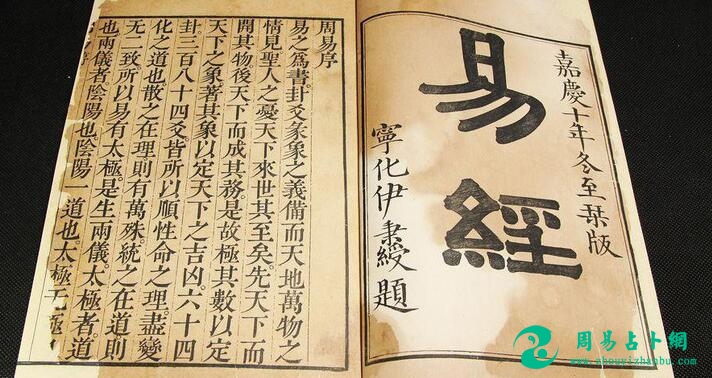 嘉慶十年冬至栞版
易經
寧化伊秉綬題
周易序
易之爲書卦爻彖象之義備而天地萬物之
情見聖人之憂天下來世其至矣。先天下而
開其物後天下而成其務。是故極其數以定
天下之象著其象以定天下之吉凶。六十四
卦三百八十四爻皆所以順性命之理盡變
化之道也。散之在理則有萬殊。統之在道則
无二致。所以易有太極。是生兩儀。太極者道
也。兩儀者陰陽也。陰陽一道也。太極无極
周易占卜網
www.zhouyizhanbu.com